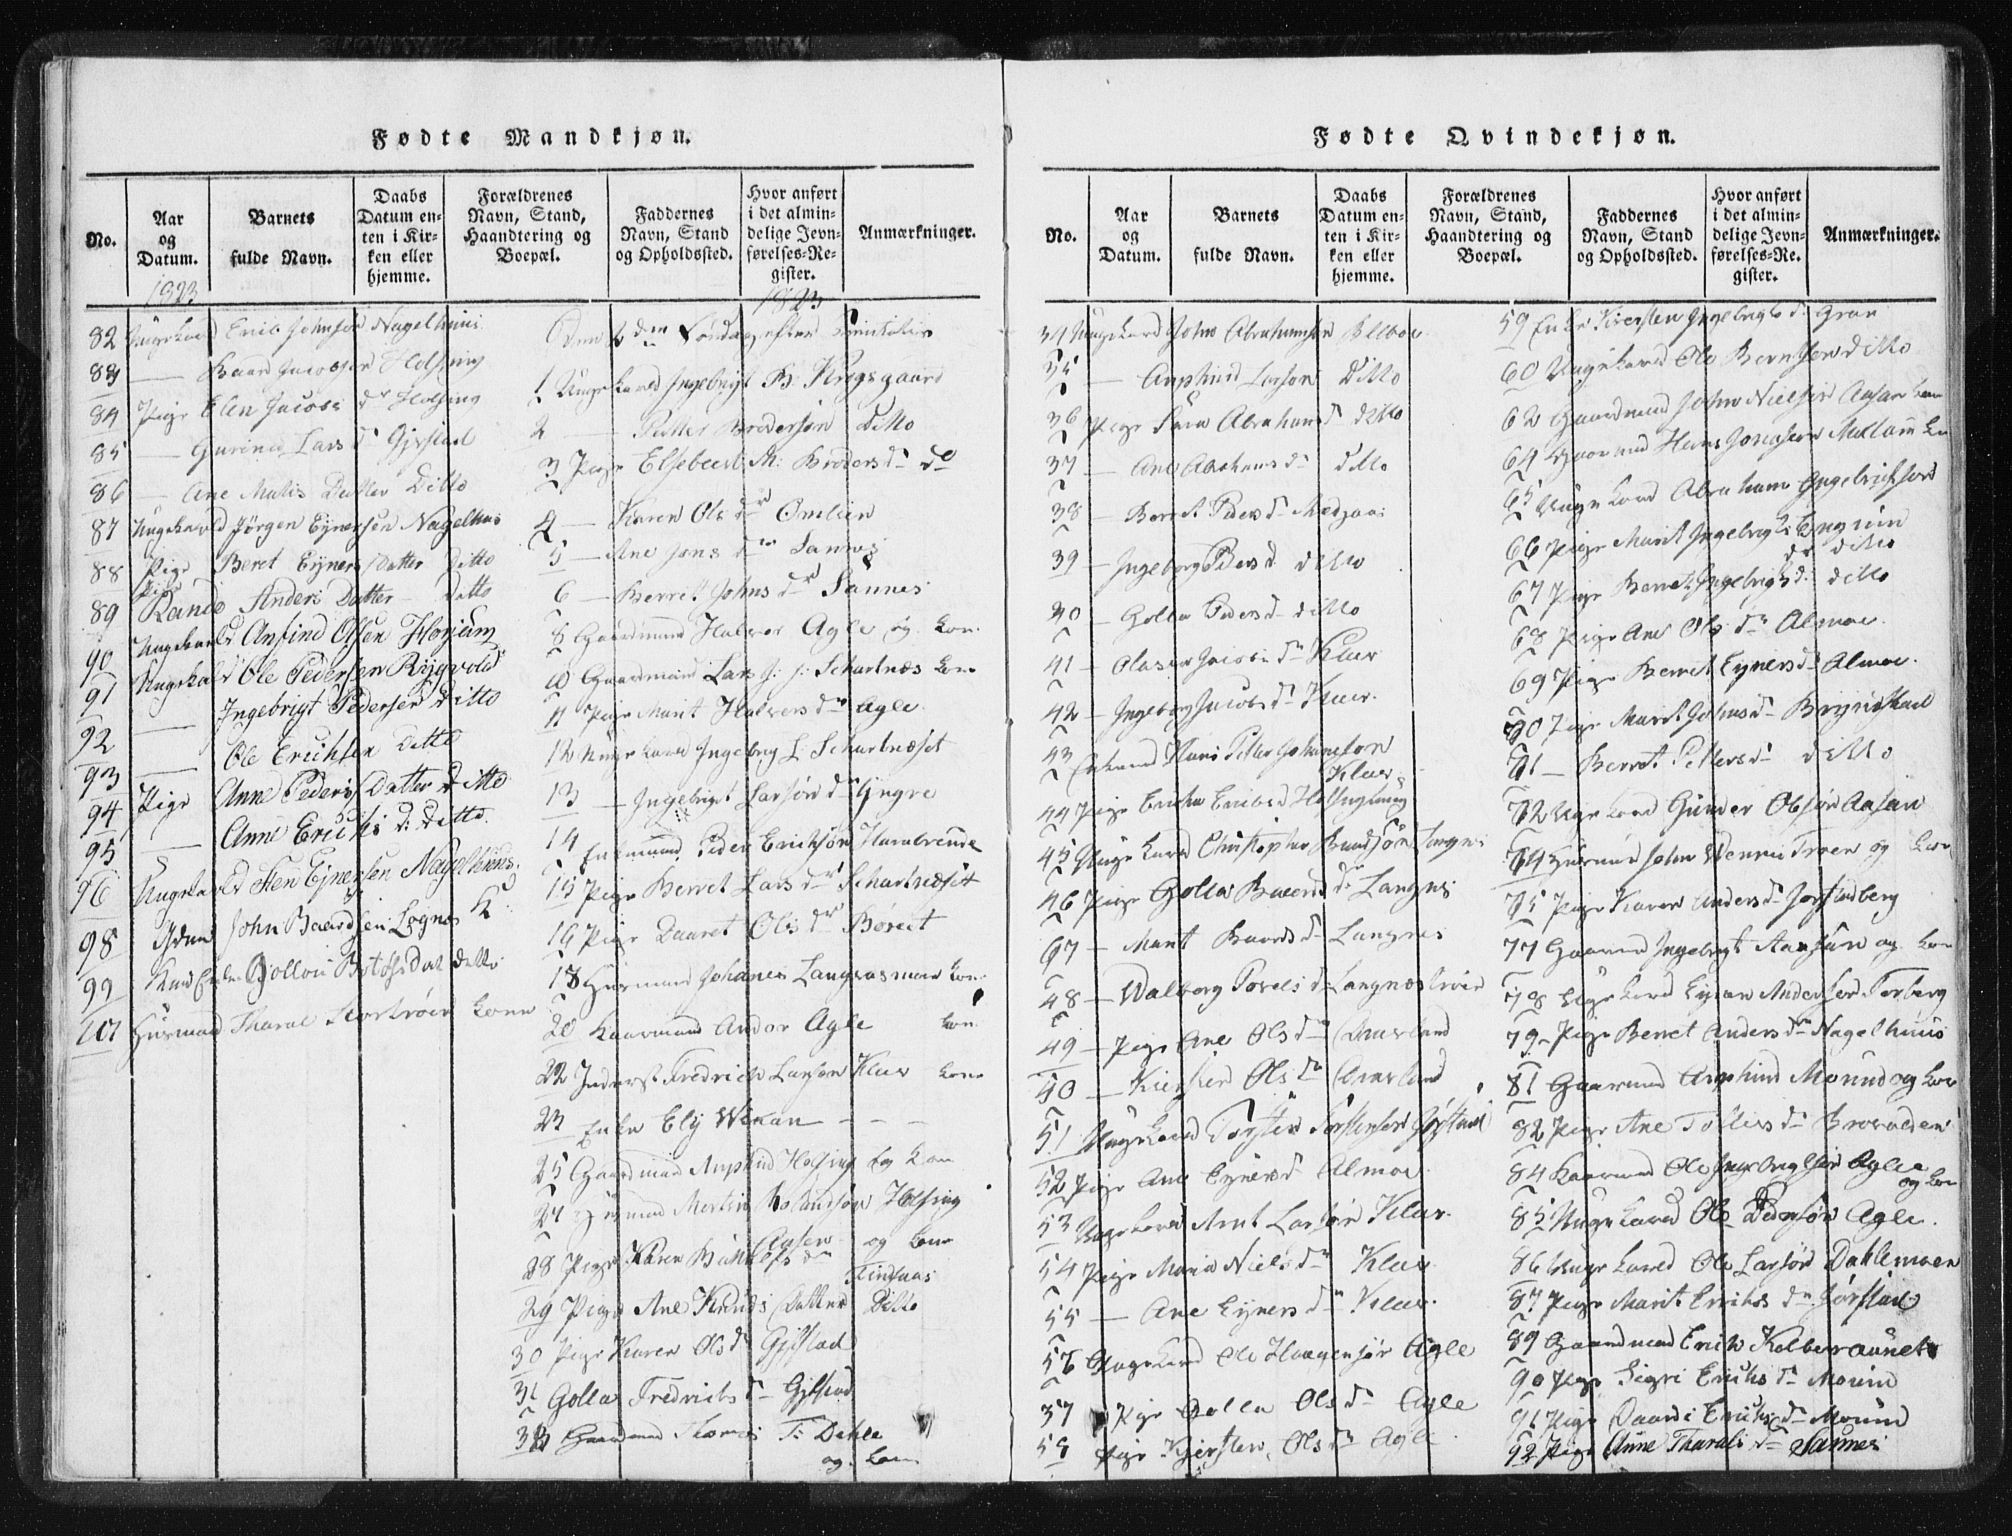 Fødte Mandkjøn.
No.
Aar og Datum.
Barnets fulde Navn.
Daabs Datum enten i Kirken eller hjemme.
Forældrenes Navn, Stand, Haandtering og Boepæl.
Faddernes Navn, Stand og Opholdssted.
Hvor anført i det almindelige Jevnførelses-Register.
Anmærkninger.
1823
82 Ungekarl Erik Johnsen Nagelhuus
83 — Baard Jacobsen Holsing
84 Pige Elen Jacobs dr Holsing
85 — Gurina Lars dr Gjefstad
86 — Ane Mathis Datter Ditto
87 Ungekarl Jørgen Ejnersen Nagelhus
88 Pige Beret Ejners Datter Ditto
89 Pige Rande Anders Datter Ditto
90 Ungekarl Anfind Olsen Florjum
91 Ungekarl Ole Pedersen Rygvold
92 — Ingebrigt Pedersen Ditto
93 — Ole Erichsen Ditto
94 Pige Anne Peders Datter Ditto
95 — Anne Erichs D: Ditto.
96 Ungekarl Sten Ejnersen Nagelhuus
98 John Baardsen Lægnes K
99 Dat Ditto
101 Huusmand Tharal Stortrøen Kone
1823
Søndag efter Trinitatis
1 Ungekarl Ingebrigt B: Krogsgaard
2 — Petter Brodersen Ditto
3 Pige Elsebeet M: Broders dr do
4 — Karen Ols dr Omlien
5 — Ane Jons dr Sannes
6 — Berrit Johns dr Sannes
8 Gaardmand Halvor Agle og Kone
10 Gaardmand Lars J: J: Schartnæs Kone
11 Pige Marit Halvors dr Agle.
12 Ungekarl Ingebrig L: Schartnæset
13 — Ingebriget Larsøn
14 Enkemand Peder Erichsøn Harabrende
15 Pige Berret Lars dr Schartnæset
16 Pige Daaret Ols dr Børset
18 Huusmand Johanes Langnæsmoen Kone
20 Gaarmand Andor Agle Kone
22 Inderst Fredrich Larsen Kluv Kone
23 Enke Elj Wiran — — —
25 Gaardmand Arnphind Holsing og Kone
27 Huusmand Morten Rolandsøn Holsing
Aasen og Kone
28 Pige Karen
Findsaas
29 Pige Ane Knuds Datter Ditto
30 Pige Karen Ols dr Gjefstad
31 Golla Fredrichs dr Gjefstad
33 Gaardmand Thomas T: Dahle
og Kone
Fødte Qvindekjøn.
No.
Aar og Datum.
Barnets fulde Navn.
Daabs Datum enten i Kirken eller hjemme.
Forældrenes Navn, Stand, Haandtering og Boepæl.
Faddernes Navn, Stand og Opholdssted.
Hvor anført i det almindelige Jevnførelses-Register.
Anmærkninger.
34 Ungekarl John Abrahamsen Belboe
35 — Anphind Larsen Ditto
36 Pige Sara Abrahams dr ditto
37 — Ane Abrahams dr ditto
38 — Berret Peders dr Medjaas
39 — Ingeborg Peders d ditto
40 — Golla Peders dr ditto
41 — Olaser Jacobs dr Kluv
42 — Ingeborg Jacobs dr Kluv.
43 Enkemand Hans Peter Johansson
Kluv
44 Pige Ericha Erichs d
45 Ungekarl Christopher Baardsøn Langnes
46 Pige Golla Baards dr Langnes
47 — Marit Baards dr Langnes
48 — Walborg Povels dr Langnestrøen
49 — Pige Ane Ols dr
40 — Kiersten Ols dr
51 Ungekarl Torsten Torstensen Gjefstad
52 Pige Ane Ejners dr Almoe.
53 Ungekarl Arnt Larsøn Kluv.
54 Pige Maria Niels dr Kluv
55 — Ane Ejners dr Kluv.
56 Ungekarl Ole Haagensøn Agle
57 Pige Golla Ols dr Agle
58 Pige Kjersten Ols dr Agle
59 Enke Kiersten Ingebrigts dr Gran
60 Ungekarl Ole Berntsen ditto
62 Gaardmand John Nielsen Aasan Kone
64 Gaarmand Hans Jonassen Mælum Kone
65 Ungekarl Abraham Ingebrichtsen
66 Pige Marit Ingebrigts
dr ditto
67 Pige Berret Ingebrigts d: ditto
68 Pige Ane Ols dr Almoe.
69 Pige Berret Ejners dr Almoe.
70 Pige Marit Johns dr
71 — Berret Petters dr ditto
72 Ungekarl Gunder Olsøn Aasan
74 Huusmand John Wennes Troen og Kone
75 Pige Karen Anders dr Jorstadberg
77 Gaarmand Ingebrigt Aassun og Kone
78 Ungekarl Ejnar Andersen Forberg
79 Pige Berret Anders dr Nagelhuus
81 Gaarmand Arnphind Mound og Kone
82 Pige Ane Tollevs dr
84 Gaarmand Ole Ingebrigtsen Agle
og Kone
85 Ungekarl Ole Pedersøn Agle.
86 Ungekarl Ole Larsøn Dahlemoen
87 Pige Marit Erichs dr Jørstad
89 Gaardmand Erich Kolberaunet
90 Pige Sigri Erichs dr Moum
91 Pige Baardi Erichs dr Moum
92 Pige Anne Tharals dr Sannes